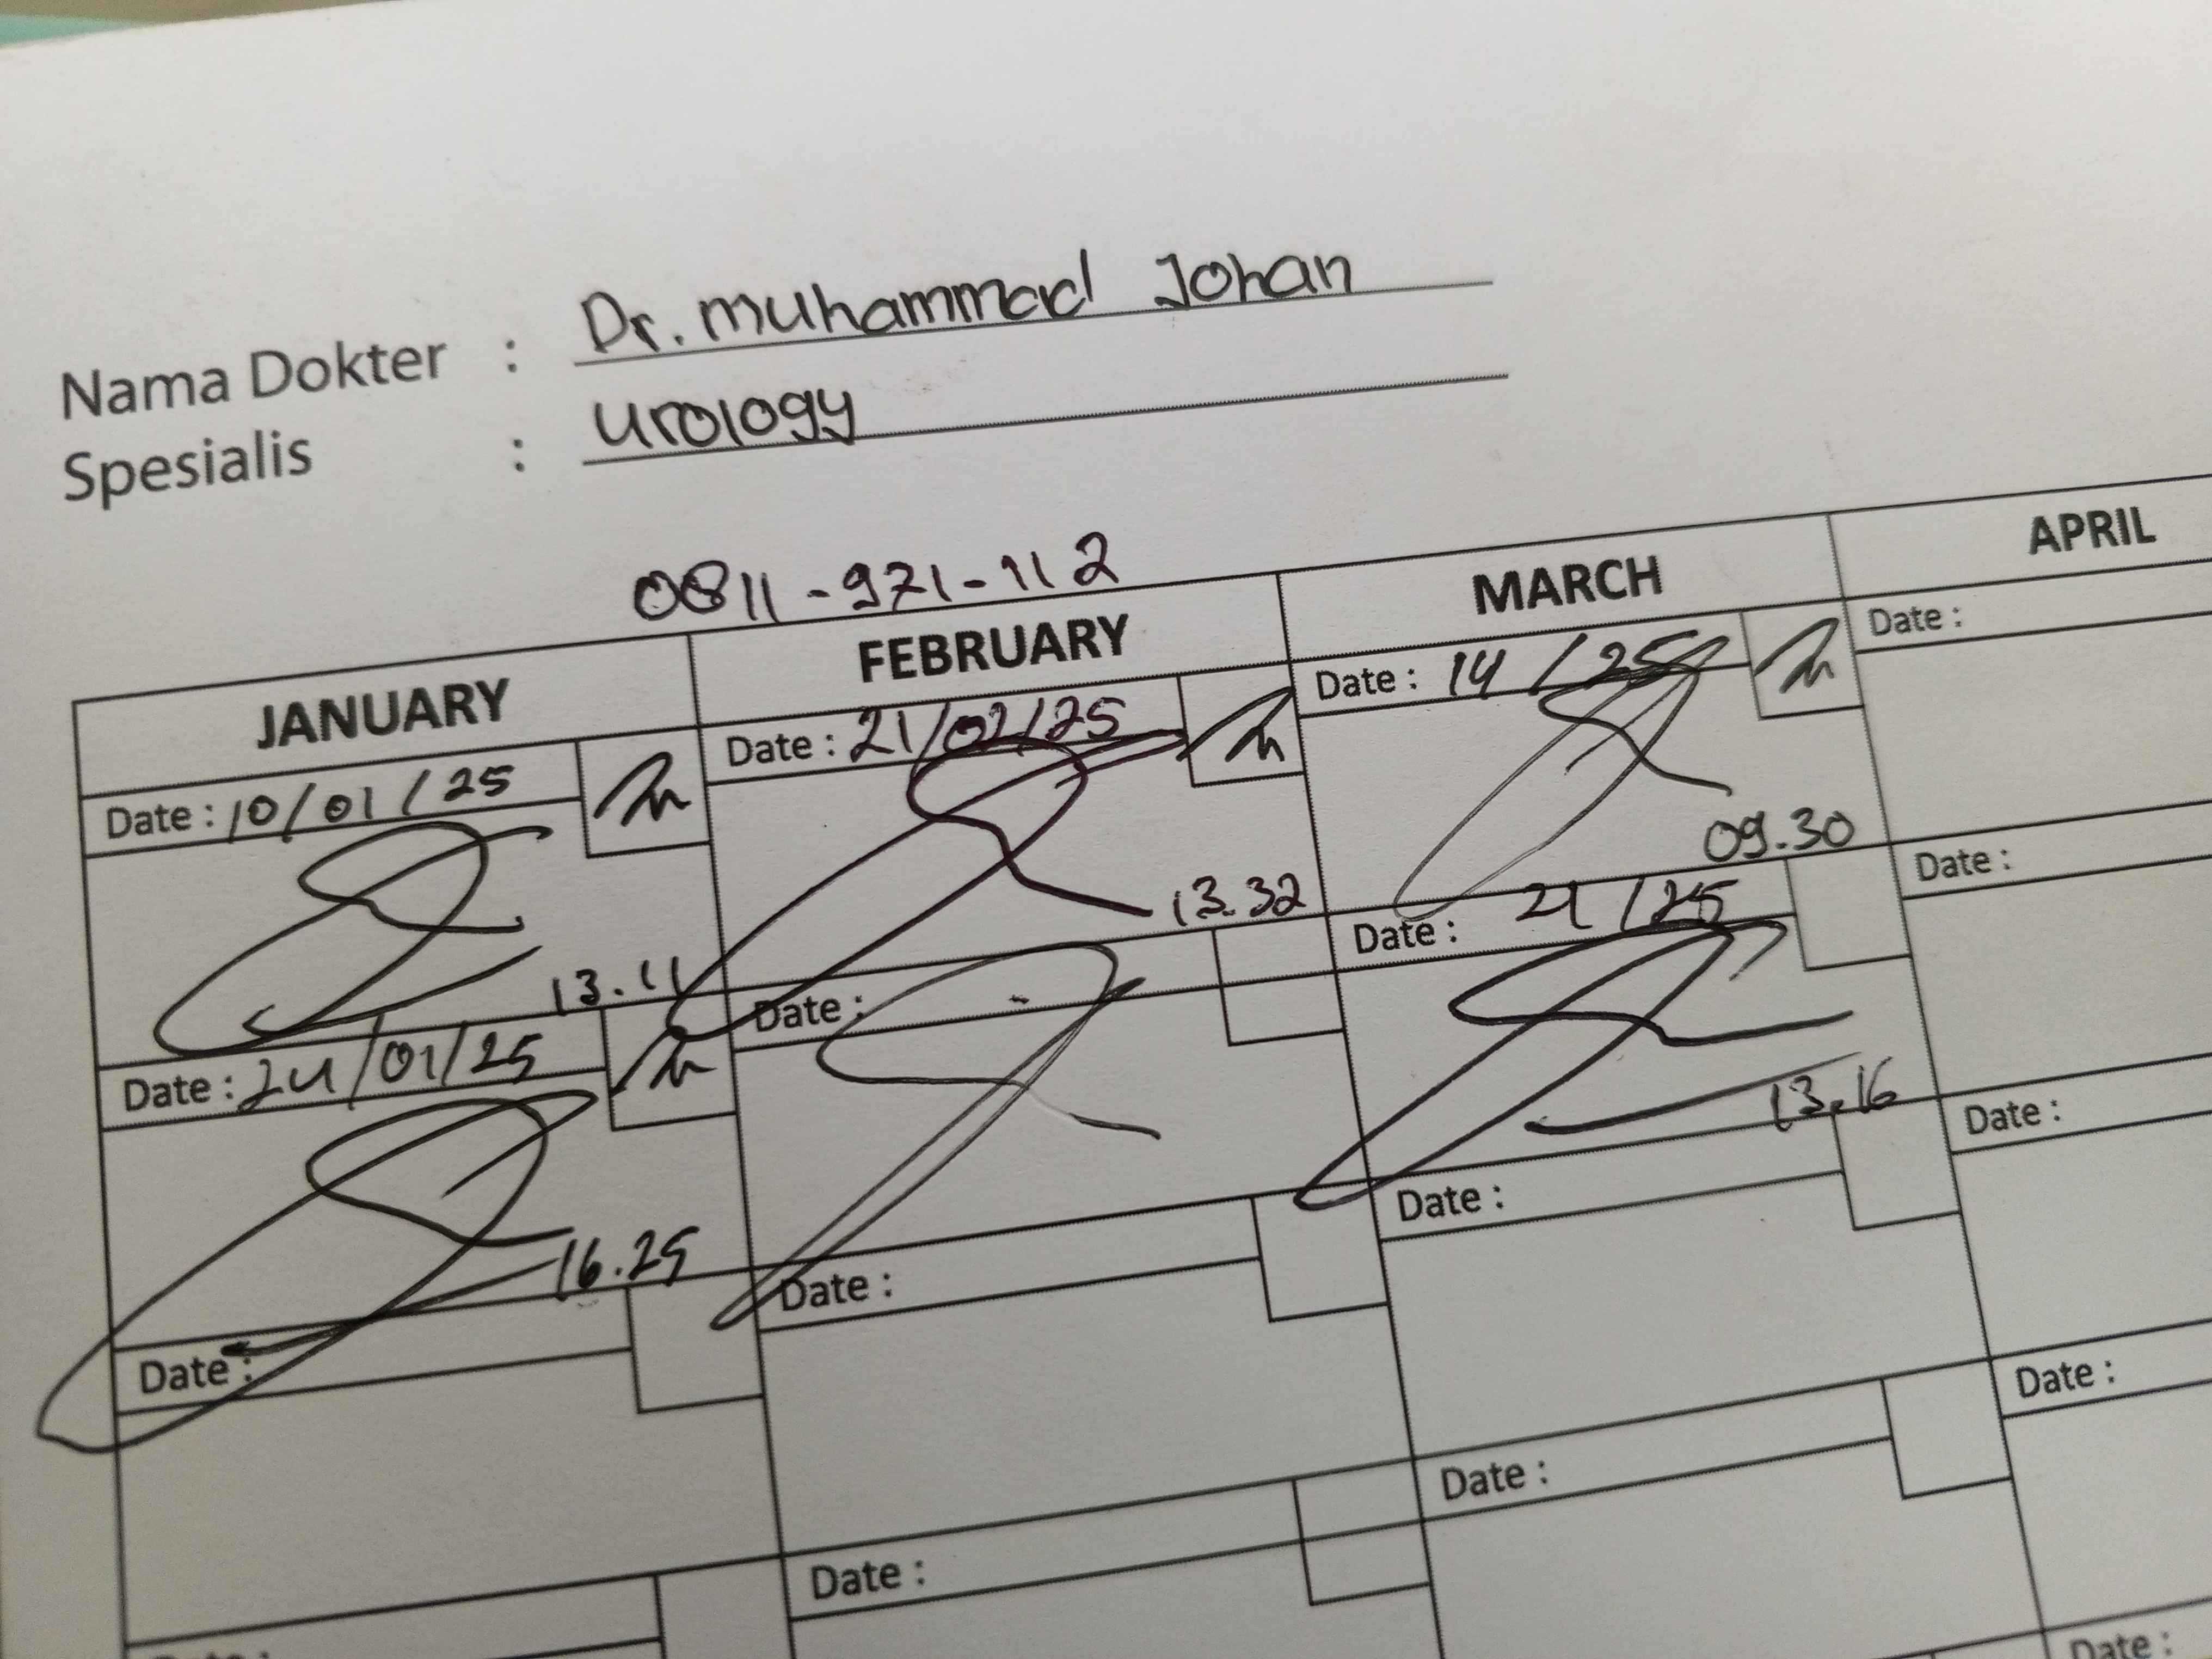 Nama Dokter : Dr. Muhammad Johan
Spesialis : Urology
0811-971-112
JANUARY FEBRUARY MARCH APRIL
Date : 10/01/25
13.11
Date : 24/01/25
16.25
Date :
Date :
Date : 21/02/25
13.32
Date :
Date :
Date :
Date : 14 / 25
09.30
Date : 21 /25
13.16
Date :
Date :
Date :
Date :
Date :
Date :
Date :